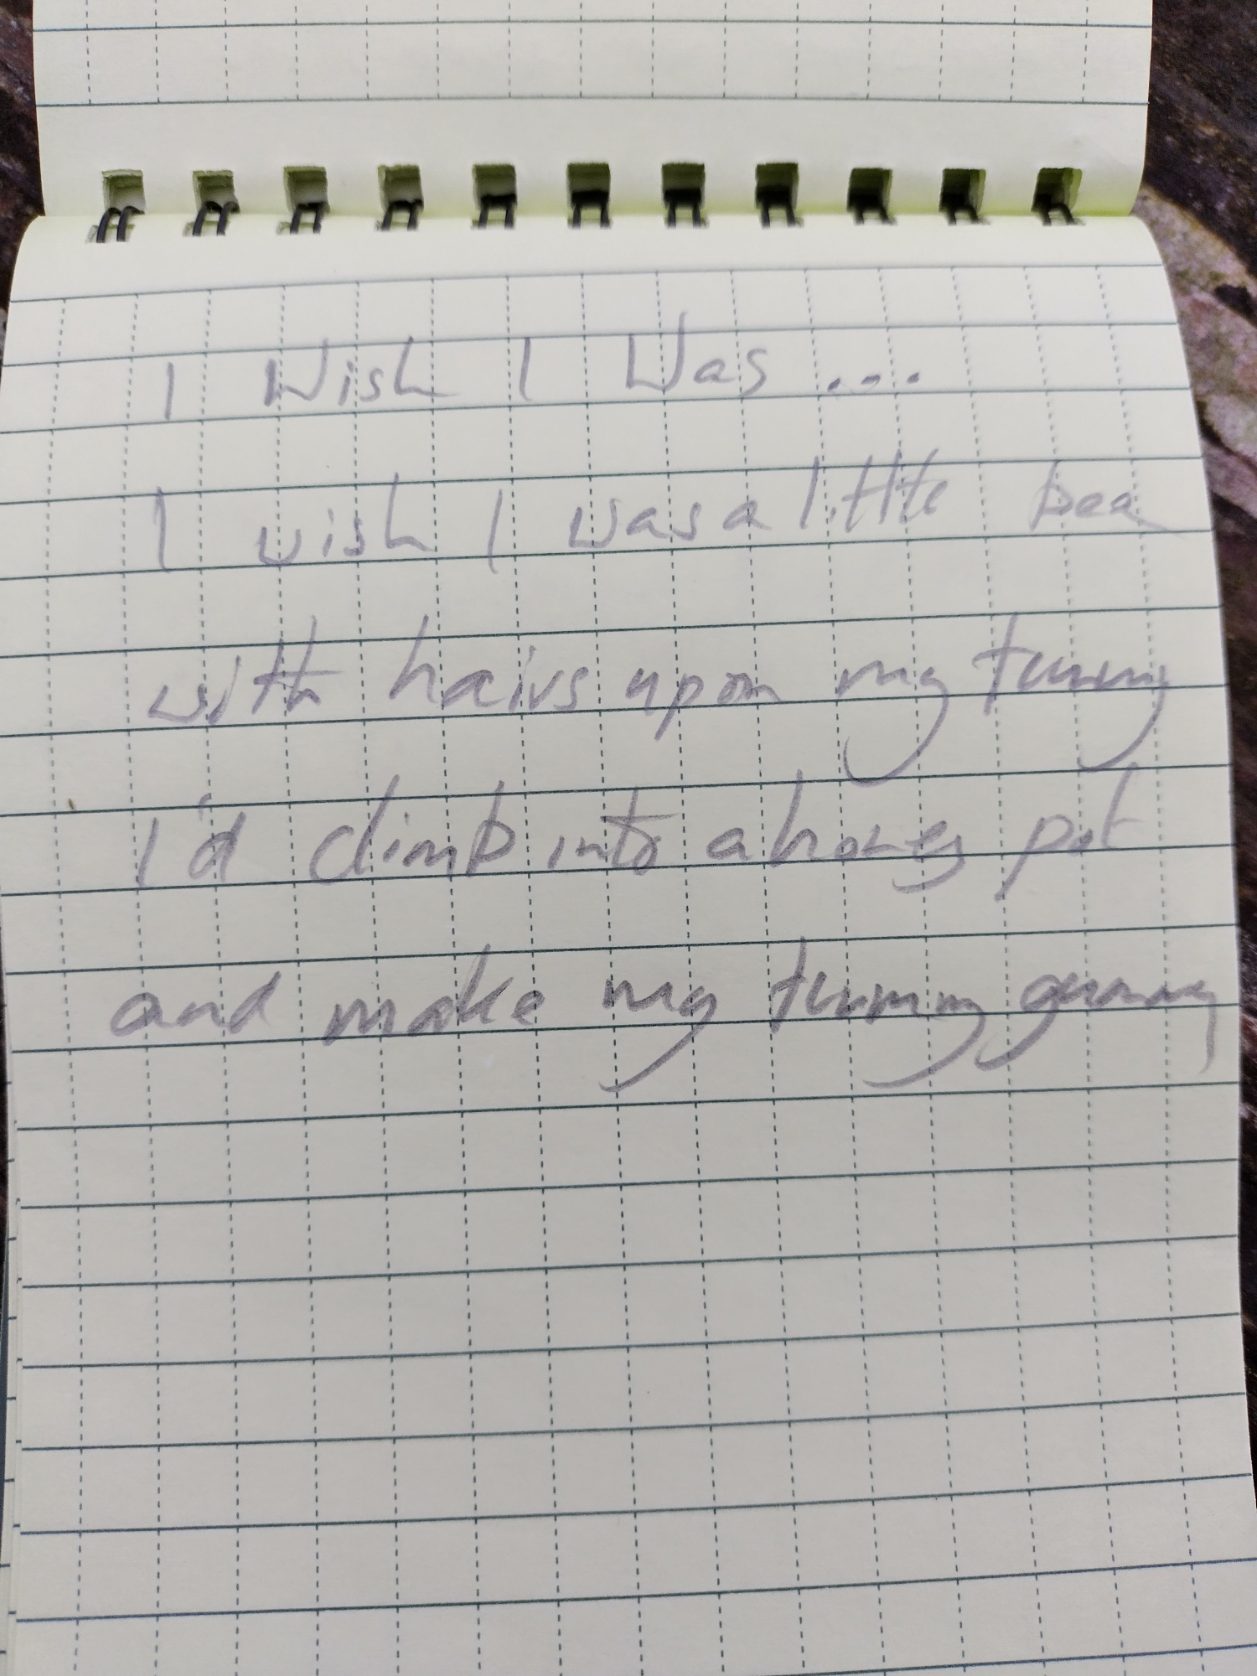 I Wish I Was ...
I wish I was a little bea
with hairs upon my tummy
I'd climb into a honey pot
and make my tummy gummy